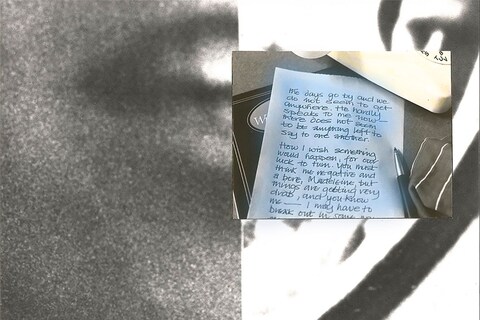 The days go by and we
do not seem to get
anywhere. He hardly
speaks to me now —
there does not seem
to be anything left to
say to one another.
How I wish something
would happen, for our
luck to turn. You must
think me negative and
a bore, Madeleine, but
things are getting very
drab, and you know
me — I may have to
break out in some
W